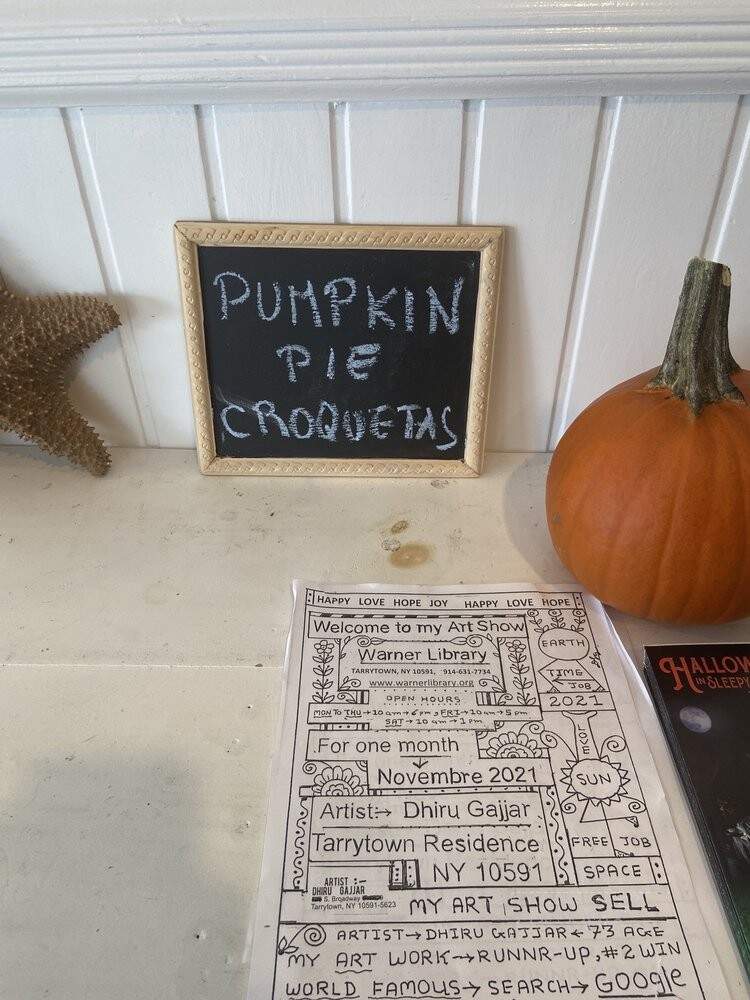 PUMPKIN
PIE
CROQUETAS
HAPPY LOVE HOPE JOY HAPPY LOVE HOPE
Welcome to my Art Show
Warner Library
TARRYTOWN, NY 10591, 914-631-7734
www.warnerlibrary.org
OPEN HOURS
MON TO THU → 10 am → 6 pm, FRI → 10 am → 5 pm
SAT → 10 am → 1 pm
For one month
Novembre 2021
Artist:→ Dhiru Gajjar
Tarrytown Residence
NY 10591
ARTIST :-
DHIRU GAJJAR
S. Broadway
Tarrytown, NY 10591-5623
MY ART SHOW SELL
ARTIST → DHIRU GAJJAR ← 73 AGE
MY ART WORK → RUNNR-UP, #2 WIN
WORLD FAMOUS → SEARCH → GOOGle
EARTH
TIME
JOB
2021
SUN
FREE JOB
SPACE
HALLOW
IN SLEEPY